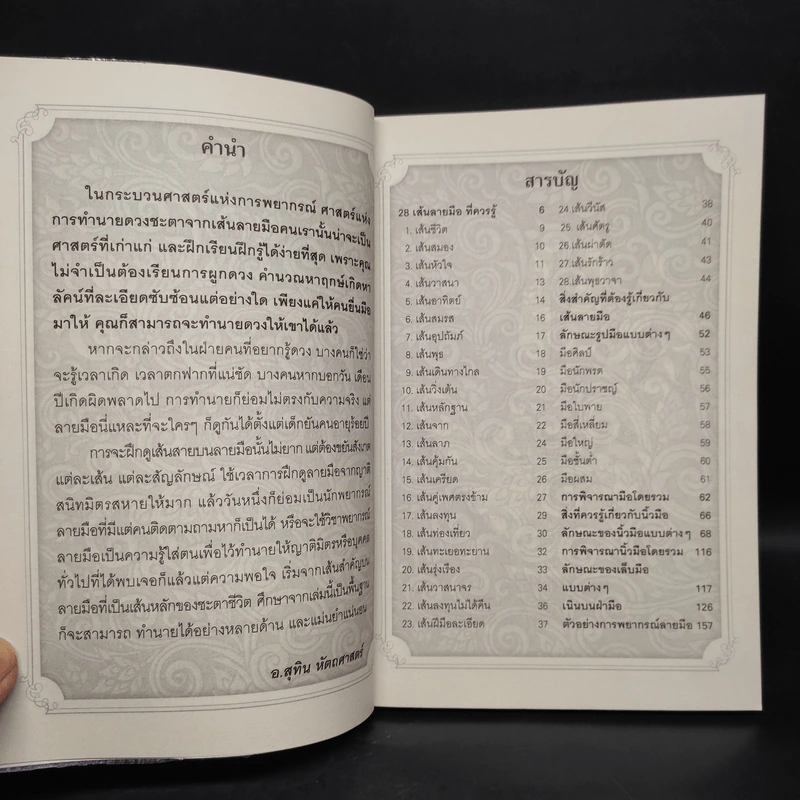 คำนำ
ในกระบวนศาสตร์แห่งการพยากรณ์ ศาสตร์แห่ง
การทำนายดวงชะตาจากเส้นลายมือคนเรานั้นน่าจะเป็น
ศาสตร์ที่เก่าแก่ และฝึกเรียนฝึกรู้ได้ง่ายที่สุด เพราะคุณ
ไม่จำเป็นต้องเรียนการผูกดวง คำนวณหาฤกษ์เกิดหา
ลัคน์ที่ละเอียดซับซ้อนแต่อย่างใด เพียงแค่ให้คนยื่นมือ
มาให้ คุณก็สามารถจะทำนายดวงให้เขาได้แล้ว
หากจะกล่าวถึงในฝ่ายคนที่อยากรู้ดวง บางคนก็ใช่ว่า
จะรู้เวลาเกิด เวลาตกฟากที่แน่ชัด บางคนหากบอกวัน เดือน
ปีเกิดผิดพลาดไป การทำนายก็ย่อมไม่ตรงกับความจริง แต่
ลายมือนี่แหละที่จะใครๆ ก็ดูกันได้ตั้งแต่เด็กยันคนอายุร้อยปี
การจะฝึกดูเส้นสายบนลายมือนั้นไม่ยาก แต่ต้องขยันสังเกต
แต่ละเส้น แต่ละสัญลักษณ์ ใช้เวลาการฝึกดูลายมือจากญาติ
สนิทมิตรสหายให้มาก แล้ววันหนึ่งก็ย่อมเป็นนักพยากรณ์
ลายมือที่มีแต่คนติดตามถามหาก็เป็นได้ หรือจะใช้วิชาพยากรณ์
ลายมือเป็นความรู้ใส่ตนเพื่อไว้ทำนายให้ญาติมิตรหรือบุคคล
ทั่วไปที่ได้พบเจอก็แล้วแต่ความพอใจ เริ่มจากเส้นสำคัญบน
ลายมือที่เป็นเส้นหลักของชะตาชีวิต ศึกษาจากเล่มนี้เป็นพื้นฐาน
ก็จะสามารถ ทำนายได้อย่างหลายด้าน และแม่นยำแน่นอน
อ.สุทิน หัตถศาสตร์
สารบัญ
28 เส้นลายมือ ที่ควรรู้ 6
1. เส้นชีวิต 9
2. เส้นสมอง 10
3. เส้นหัวใจ 11
4. เส้นวาสนา 13
5. เส้นอาทิตย์ 14
6. เส้นสมรส 16
7. เส้นอุปถัมภ์ 17
8. เส้นพุธ 18
9. เส้นเดินทางไกล 19
10. เส้นวิ่งเต้น 20
11. เส้นหลักฐาน 21
12. เส้นจาก 22
13. เส้นลาภ 24
14. เส้นคุ้มกัน 25
15. เส้นเครียด 26
16. เส้นคู่เพศตรงข้าม 27
17. เส้นลงทุน 29
18. เส้นท่องเที่ยว 30
19. เส้นทะเยอทะยาน 32
20. เส้นรุ่งเรือง 33
21. เส้นวาสนาจร 34
22. เส้นลงทุนไม่ได้คืน 36
23. เส้นฝีมือละเอียด 37
24. เส้นวีนัส 38
25. เส้นศัตรู 40
26. เส้นผ่าตัด 41
27. เส้นรักร้าว 43
28. เส้นพุธวาจา 44
สิ่งสำคัญที่ต้องรู้เกี่ยวกับ
เส้นลายมือ 46
ลักษณะรูปมือแบบต่างๆ 52
มือศิลป์ 53
มือนักพรต 55
มือนักปราชญ์ 56
มือใบพาย 57
มือสี่เหลี่ยม 58
มือใหญ่ 59
มือชั้นต่ำ 60
มือผสม 61
การพิจารณามือโดยรวม 62
สิ่งที่ควรรู้เกี่ยวกับนิ้วมือ 66
ลักษณะของนิ้วมือแบบต่างๆ 68
การพิจารณานิ้วมือโดยรวม 116
ลักษณะของเล็บมือ
แบบต่างๆ 117
เนินบนฝ่ามือ 126
ตัวอย่างการพยากรณ์ลายมือ 157